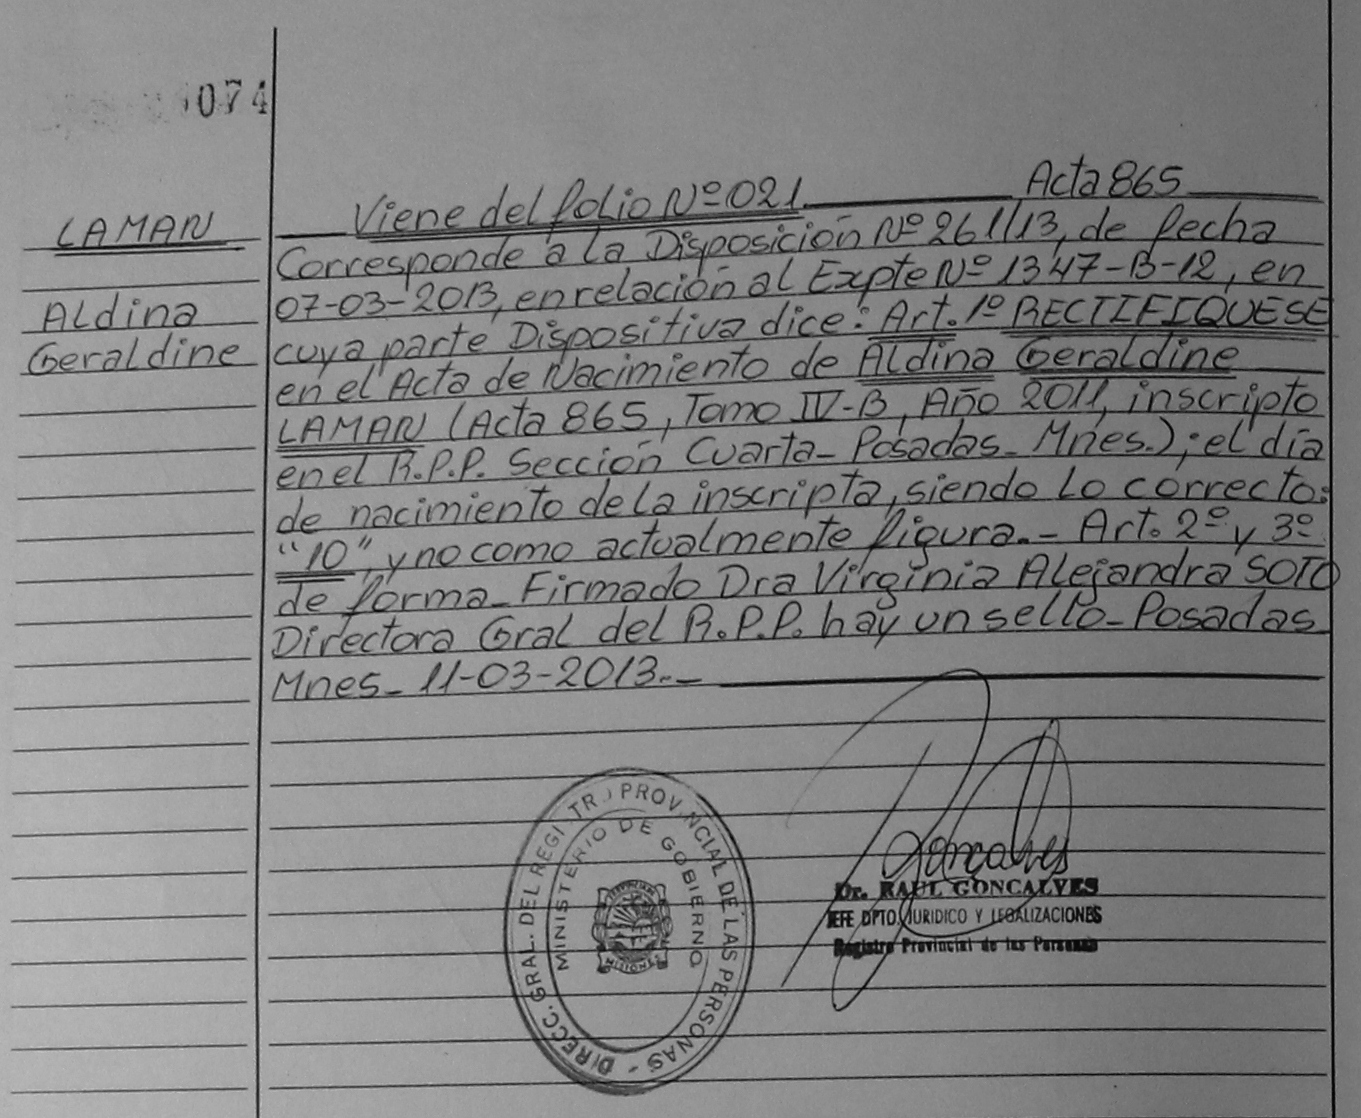 074
LAMAN
Aldina
Geraldine
Viene del folio Nº 021. Acta 865
Corresponde a la Disposición Nº 261/13, de fecha
07-03-2013, en relación al Expte Nº 1347-B-12, en
cuya parte Dispositiva dice: Art. 1º RECTIFIQUESE
en el Acta de Nacimiento de Aldina Geraldine
LAMAN (Acta 865, Tomo IV-B, Año 2011, inscripto
en el R.P.P. Sección Cuarta- Posadas- Mnes.); el día
de nacimiento de la inscripta, siendo lo correcto:
"10", y no como actualmente figura.- Art. 2º y 3º
de forma- Firmado Dra Virginia Alejandra SOTO
Directora Gral del R.P.P. hay un sello- Posadas
Mnes- 11-03-2013.-
DIRECC. GRAL. DEL REGISTRO PROVINCIAL DE LAS PERSONAS -
MINISTERIO DE GOBIERNO
MISIONES
Goncalves
Dr. RAUL GONCALVES
JEFE DPTO. JURIDICO Y LEGALIZACIONES
Registro Provincial de las Personas